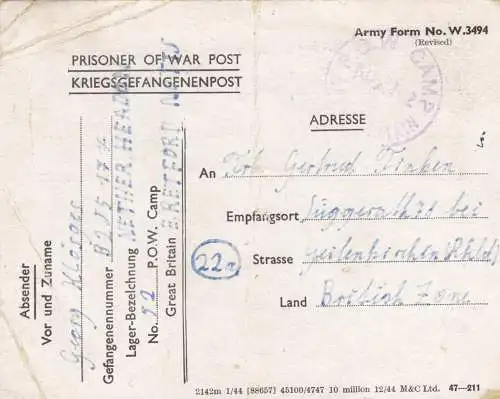 Army Form No. W.3494
(Revised)
PRISONER OF WAR POST
KRIEGSGEFANGENENPOST
CAMP
ADRESSE
An Gertrud Finken
Empfangsort Süggerath 78 bei
22a
Strasse Geilenkirchen (Rhld)
Land British Zone
Absender
Vor und Zuname Georg
Gefangenennummer
Lager-Bezeichnung NETHER HEADON
No. 52 P.O.W. Camp
Great Britain RETFORD NOTTS
2142m 1/44 [88657] 45100/4747 10 million 12/44 M&C Ltd. 47—211